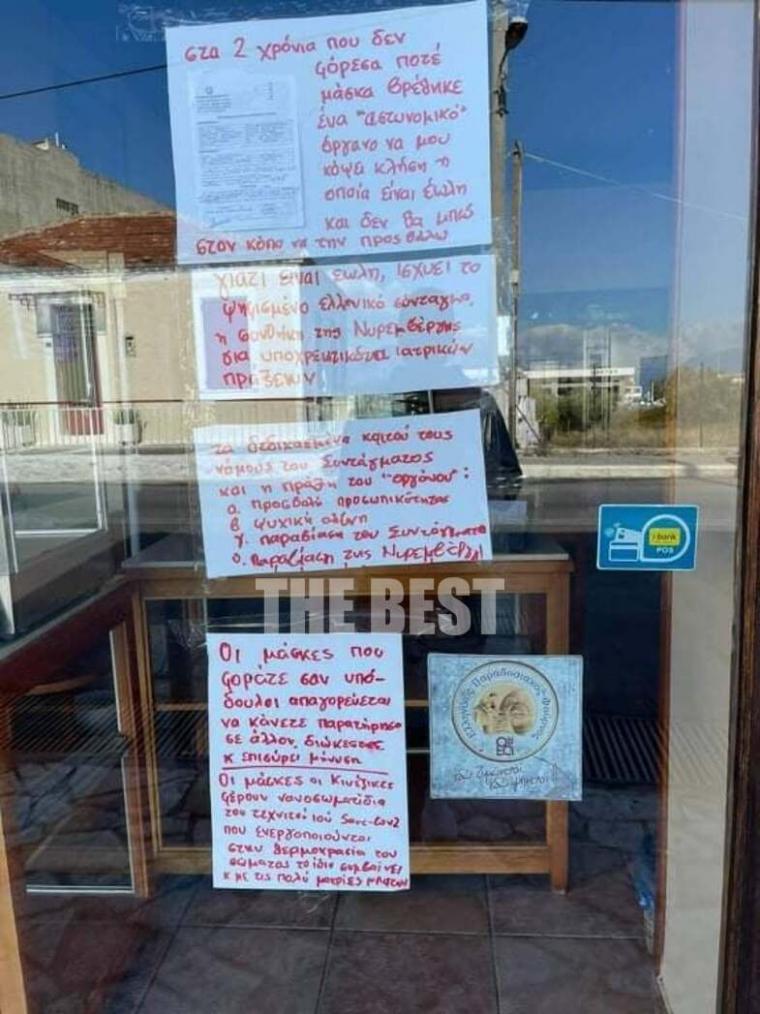 στα 2 χρόνια που δεν
φόρεσα ποτέ
μάσκα βρέθηκε
ένα "αστυνομικό"
όργανο να μου
κόψει κλήση η
οποία είναι έωλη
και δεν θα μπω
στον κόπο να την προσβάλω
γιατί είναι έωλη, ισχύει το
ψηφισμένο ελληνικό σύνταγμα,
η συνθήκη της Νυρεμβέργης
για υποχρεωτικότητα ιατρικών
πράξεων
τα δεδικασμένα κατά τους
νόμους του Συντάγματος
και η πράξη του "οργάνου":
α. προσβολή προσωπικότητας
β ψυχική οδύνη
γ. παραβίαση του Συντάγματος
δ. Παραβίαση της Νυρεμβέργη
THE BEST
i-bank
POS
Οι μάσκες που
φοράτε σαν υπό-
δουλοι απαγορεύεται
να κάνετε παρατήρηση
σε άλλον, διώκεται
κ επισύρει μήνυση
Οι μάσκες οι Κινέζικες
φέρουν νανοσωματίδια
του τεχνητού ιού Sars-Cov2
που ενεργοποιούνται
στην θερμοκρασία του
σώματος το ίδιο συμβαίνει
κ με τις πολύ μακριές
Ελληνικός Παραδοσιακός Φούρνος